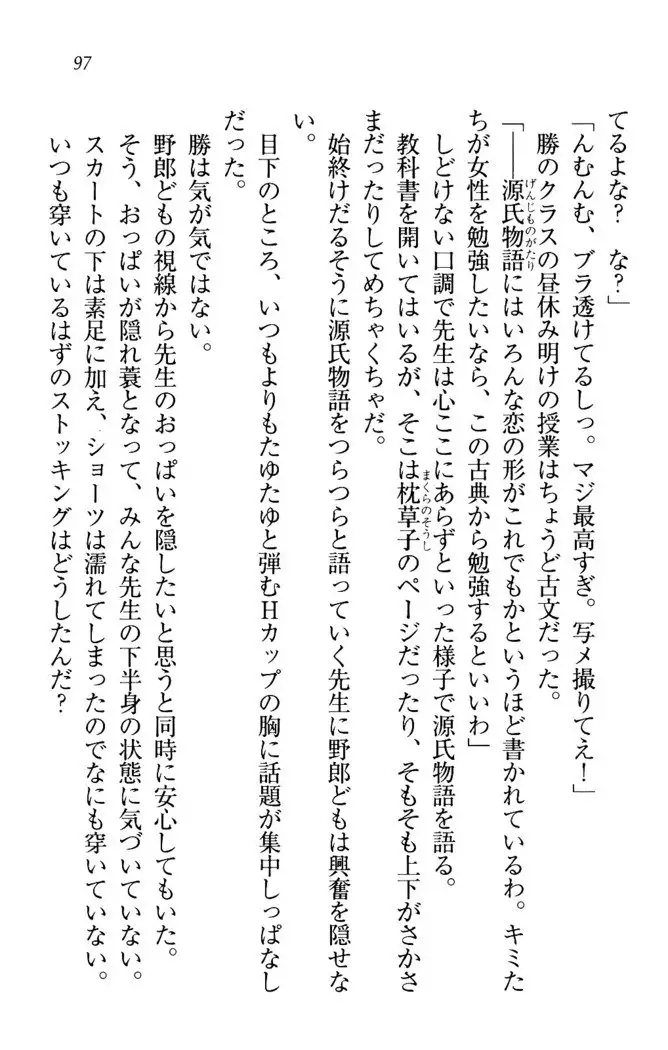 97
てるよな？　な？」
「んむんむ、ブラ透けてるしっ。マジ最高すぎ。写メ撮りてえ！」
勝のクラスの昼休み明けの授業はちょうど古文だった。
「――源氏物語にはいろんな恋の形がこれでもかというほど書かれているわ。キミた
げんじものがたり
ちが女性を勉強したいなら、この古典から勉強するといいわ」
しどけない口調で先生は心ここにあらずといった様子で源氏物語を語る。
教科書を開いてはいるが、そこは枕草子のページだったり、そもそも上下がさかさ
まくらのそうし
まだったりしてめちゃくちゃだ。
始終けだるそうに源氏物語をつらつらと語っていく先生に野郎どもは興奮を隠せな
い。
目下のところ、いつもよりもたゆたゆと弾むHカップの胸に話題が集中しっぱなし
だった。
勝は気が気ではない。
野郎どもの視線から先生のおっぱいを隠したいと思うと同時に安心してもいた。
そう、おっぱいが隠れ蓑となって、みんな先生の下半身の状態に気づいていない。
スカートの下は素足に加え、ショーツは濡れてしまったのでなにも穿いていない。
いつも穿いているはずのストッキングはどうしたんだ？